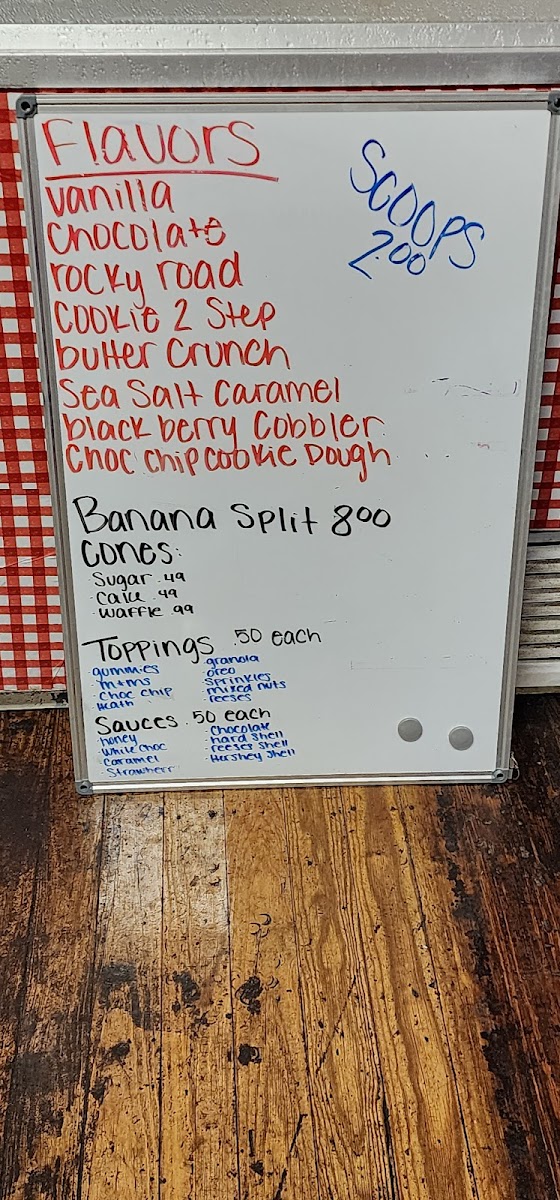 Flavors
vanilla
chocolate
rocky road
cookie 2 Step
butter crunch
Sea Salt Caramel
black berry Cobbler
Choc chip cookie Dough
SCOOPS
2.00
Banana Split 800
cones:
Sugar .49
Cake .49
waffle .99
Toppings .50 each
gummies
m+ms
choc chip
Heath
granola
oreo
Sprinkles
mixed nuts
reeses
Sauces .50 each
honey
while choc
Caramel
Strawberr
Chocolate
hard shell
reeses shell
Hershey shell